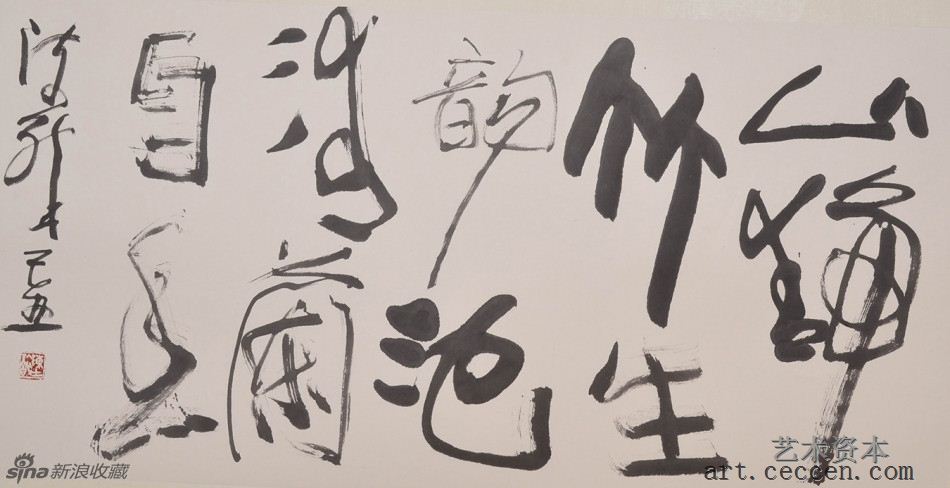 山静
竹生
韵池
清蘭
自香
己丑
sina新浪收藏
艺术资本
art.ceccen.com